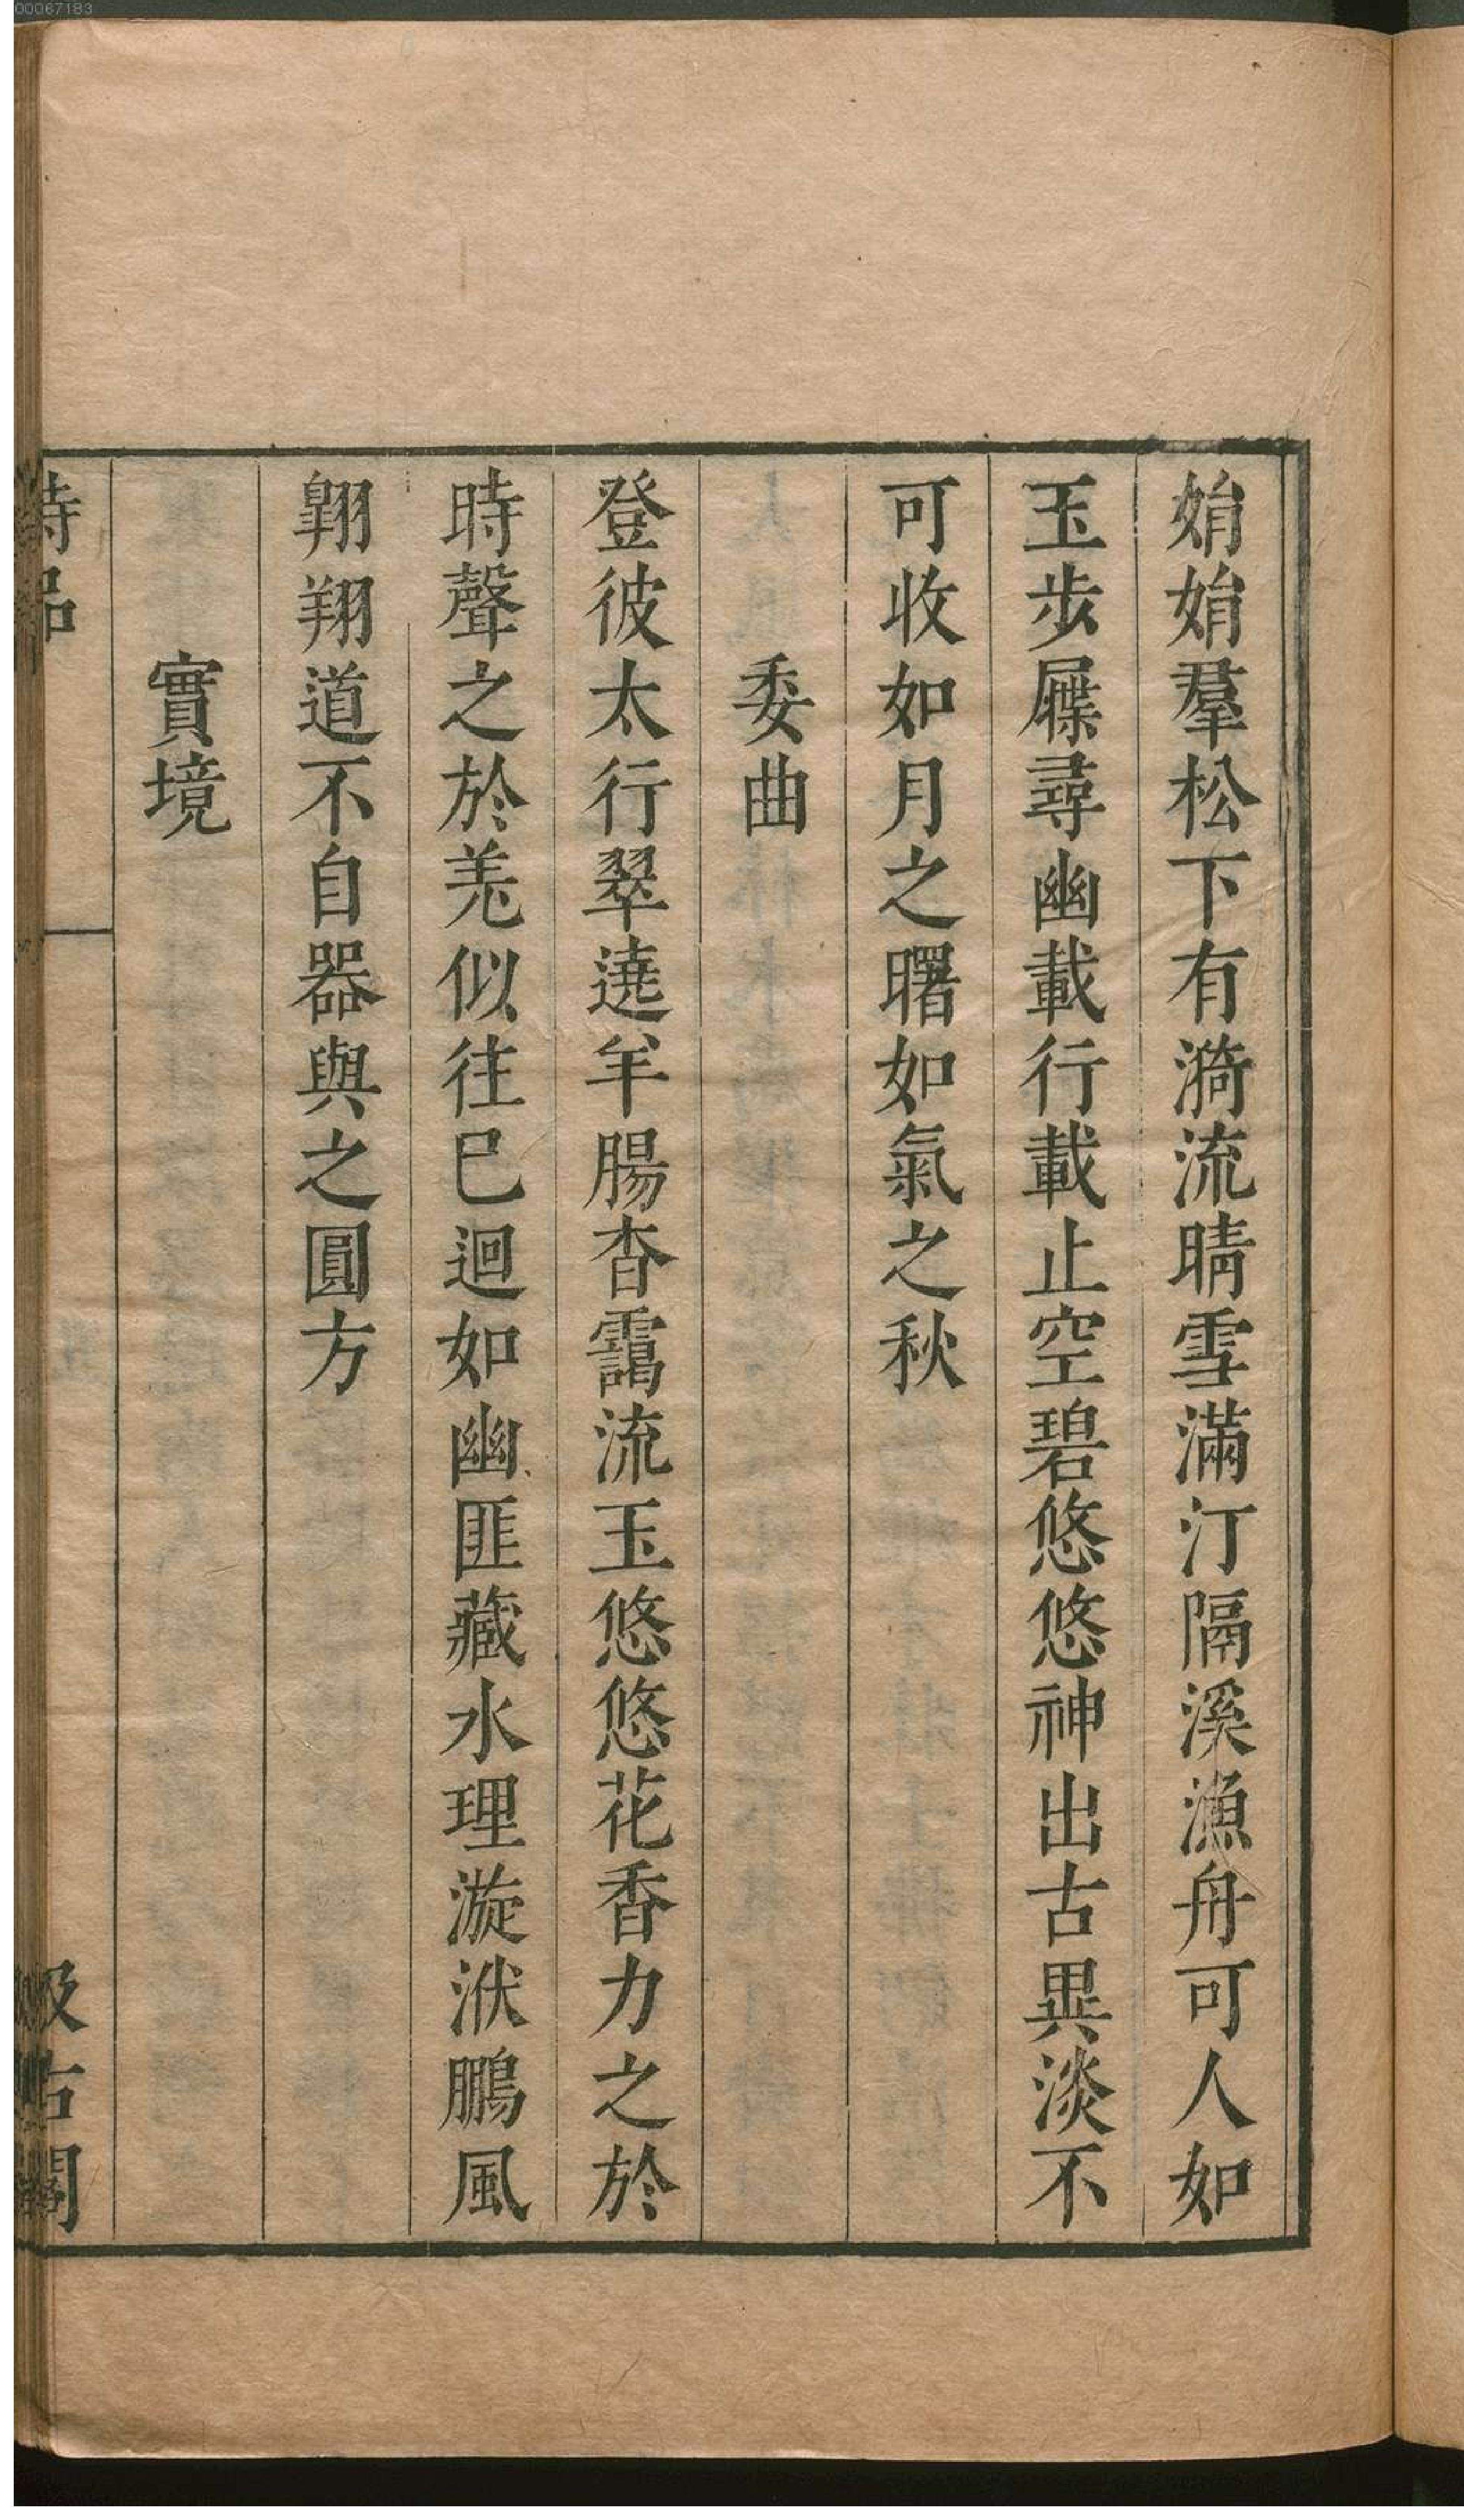 00067183
娋娋羣松下有漪流晴雪滿汀隔溪漁舟可人如
玉步屧尋幽載行載止空碧悠悠神出古異淡不
可收如月之曙如氣之秋
委曲
登彼太行翠遶羊腸杳靄流玉悠悠花香力之於
時聲之於羌似往已迴如幽匪藏水理漩洑鵬風
翺翔道不自器與之圓方
實境
詩品
汲古閣